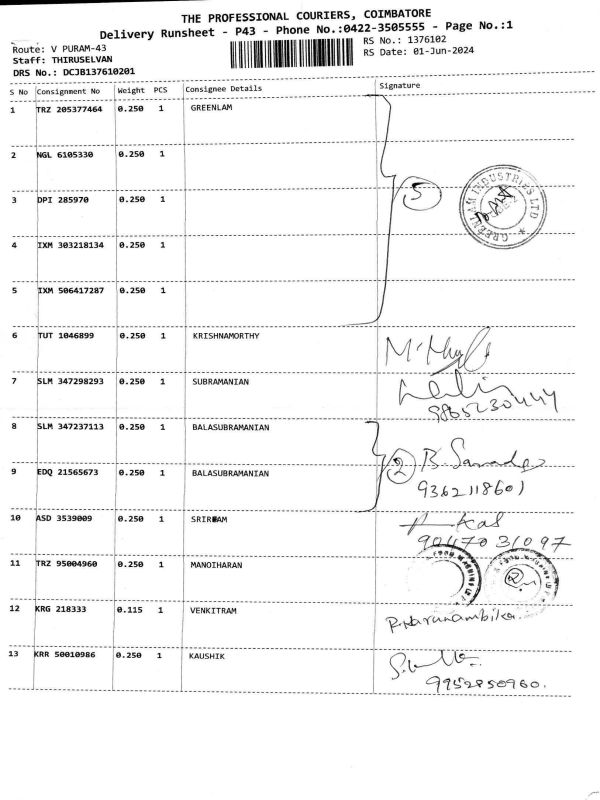 THE PROFESSIONAL COURIERS, COIMBATORE
Delivery Runsheet - P43 - Phone No.:0422-3505555 - Page No.:1
Route: V PURAM-43
RS No.: 1376102
Staff: THIRUSELVAN
RS Date: 01-Jun-2024
DRS No.: DCJB137610201
S No Consignment No Weight PCS Consignee Details Signature
1 TRZ 205377464 0.250 1 GREENLAM
2 NGL 6105330 0.250 1
3 DPI 285970 0.250 1
5
GREENLAM INDUSTRIES LTD
4 IXM 303218134 0.250 1
5 IXM 506417287 0.250 1
6 TUT 1046899 0.250 1 KRISHNAMORTHY
7 SLM 347298293 0.250 1 SUBRAMANIAN
9865230444
8 SLM 347237113 0.250 1 BALASUBRAMANIAN
2
9 EDQ 21565673 0.250 1 BALASUBRAMANIAN
9362118601
10 ASD 3539009 0.250 1 SRIRAM
9047031097
11 TRZ 95004960 0.250 1 MANOIHARAN
12 KRG 218333 0.115 1 VENKITRAM
13 KRR 50010986 0.250 1 KAUSHIK
9952850960.